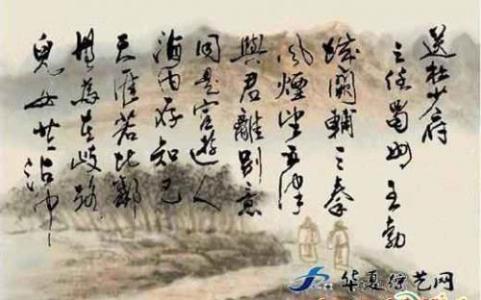 送杜少府
之任蜀州 王勃
城闕輔三秦
風煙望五津
與君離別意
同是宦遊人
海内存知己
天涯若比鄰
無為在歧路
兒女共沾巾
华夏综艺网